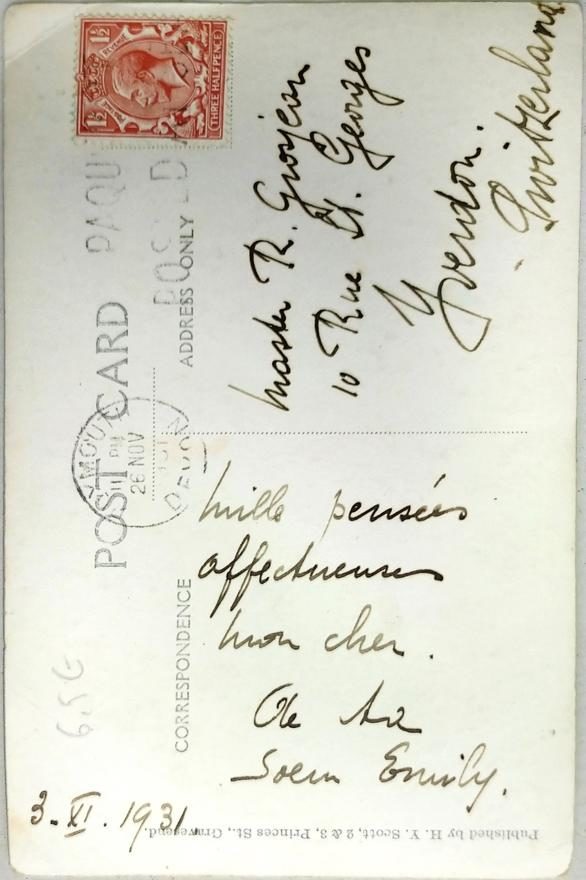 POST CARD
CORRESPONDENCE
ADDRESS ONLY
1½
1½
THREE HALFPENCE
PAQU
POS ED
YMOU
PM
26 NOV
DEVON
Master R. Grosjean
10 Rue St. Georges
Yverdon.
Switzerland
Mille pensées
affectueuses
mon cher.
De ta
Soeur Emily.
3. XI. 1931.
Published by H. Y. Scott, 2 & 3, Princes St., Gravesend.